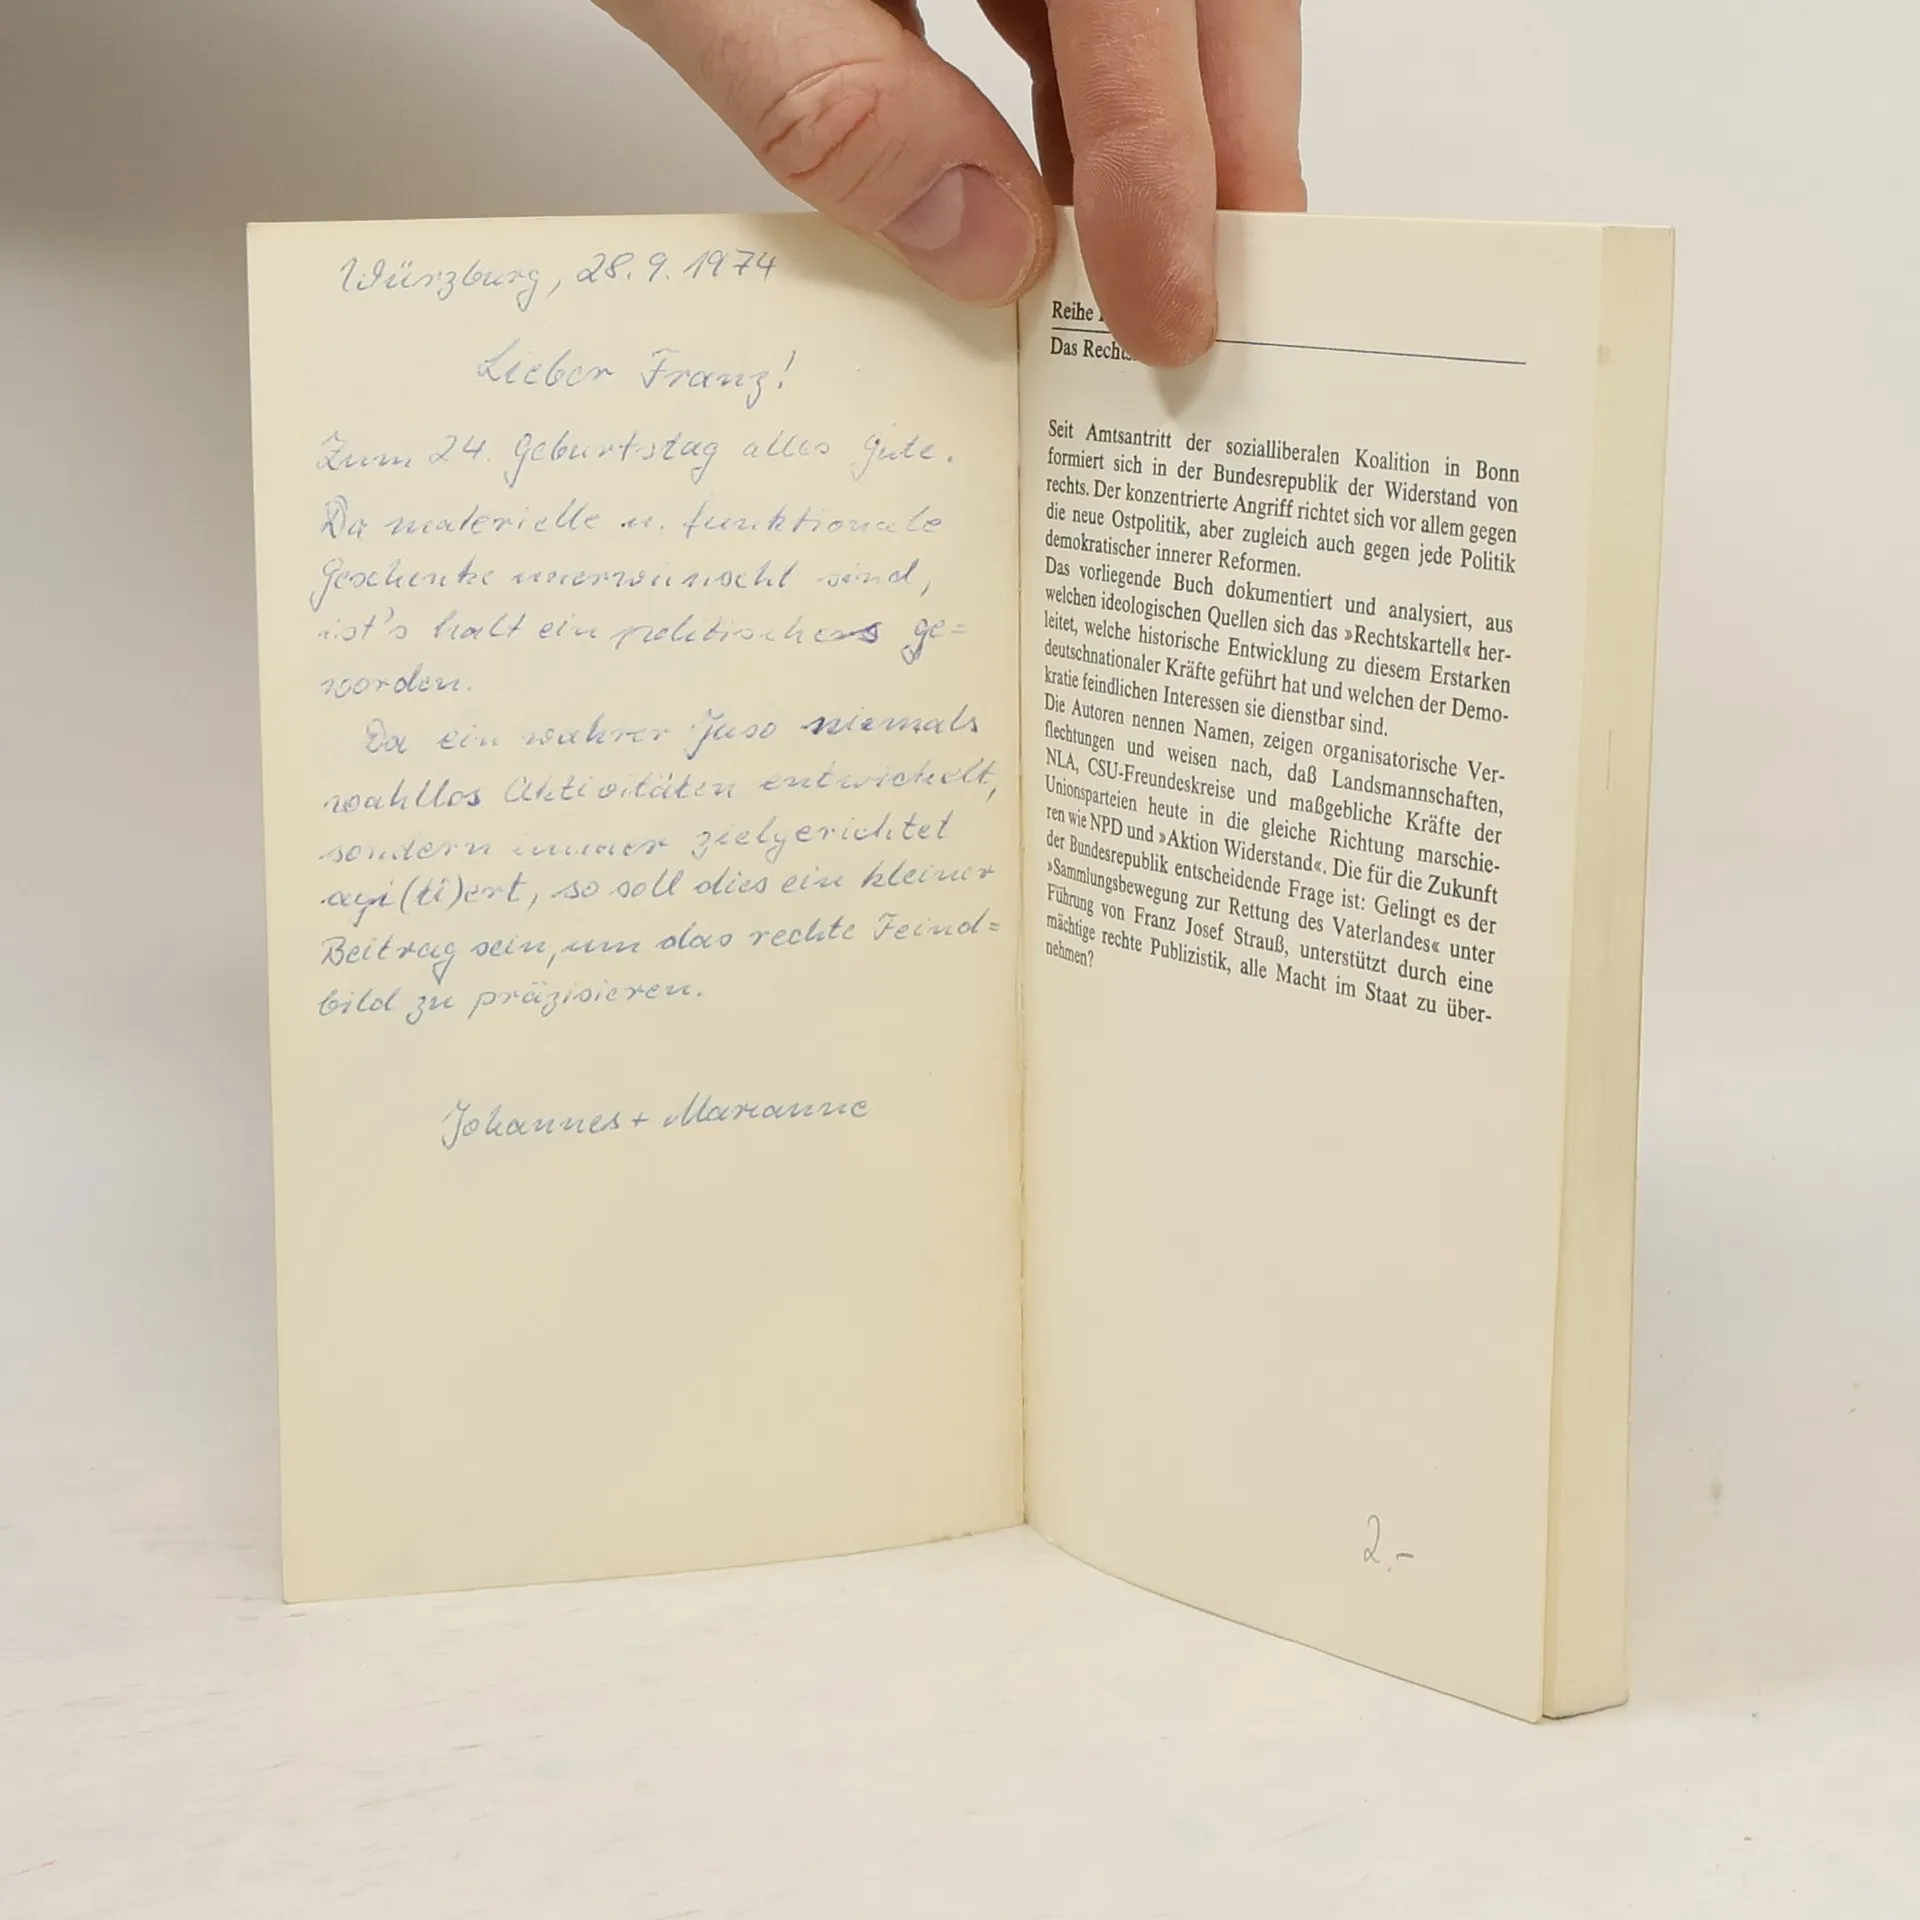 Würzburg, 28.9.1974
Lieber Franz!
Zum 24. Geburtstag alles Gute.
Da materielle u. funktionale
Geschenke unerwünscht sind,
ist's halt ein politisches ge=
worden.
Da ein wahrer Juso niemals
wahllos Aktivitäten entwickelt,
sondern immer zielgerichtet
agi(ti)ert, so soll dies ein kleiner
Beitrag sein, um das rechte Feind=
bild zu präzisieren.
Johannes + Marianne
Reihe
Das
Seit Amtsantritt der sozialliberalen Koalition in Bonn
formiert sich in der Bundesrepublik der Widerstand von
rechts. Der konzentrierte Angriff richtet sich vor allem gegen
die neue Ostpolitik, aber zugleich auch gegen jede Politik
demokratischer innerer Reformen.
Das vorliegende Buch dokumentiert und analysiert, aus
welchen ideologischen Quellen sich das »Rechtskartell« her-
leitet, welche historische Entwicklung zu diesem Erstarken
deutschnationaler Kräfte geführt hat und welchen der Demo-
kratie feindlichen Interessen sie dienstbar sind.
Die Autoren nennen Namen, zeigen organisatorische Ver-
flechtungen und weisen nach, daß Landsmannschaften,
NLA, CSU-Freundeskreise und maßgebliche Kräfte der
Unionsparteien heute in die gleiche Richtung marschie-
ren wie NPD und »Aktion Widerstand«. Die für die Zukunft
der Bundesrepublik entscheidende Frage ist: Gelingt es der
»Sammlungsbewegung zur Rettung des Vaterlandes« unter
Führung von Franz Josef Strauß, unterstützt durch eine
mächtige rechte Publizistik, alle Macht im Staat zu über-
nehmen?
2.-